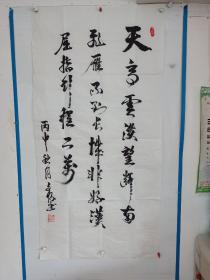 天高雲淡望斷南
飛雁不到長城非好漢
屈指行程二萬
丙申秋月